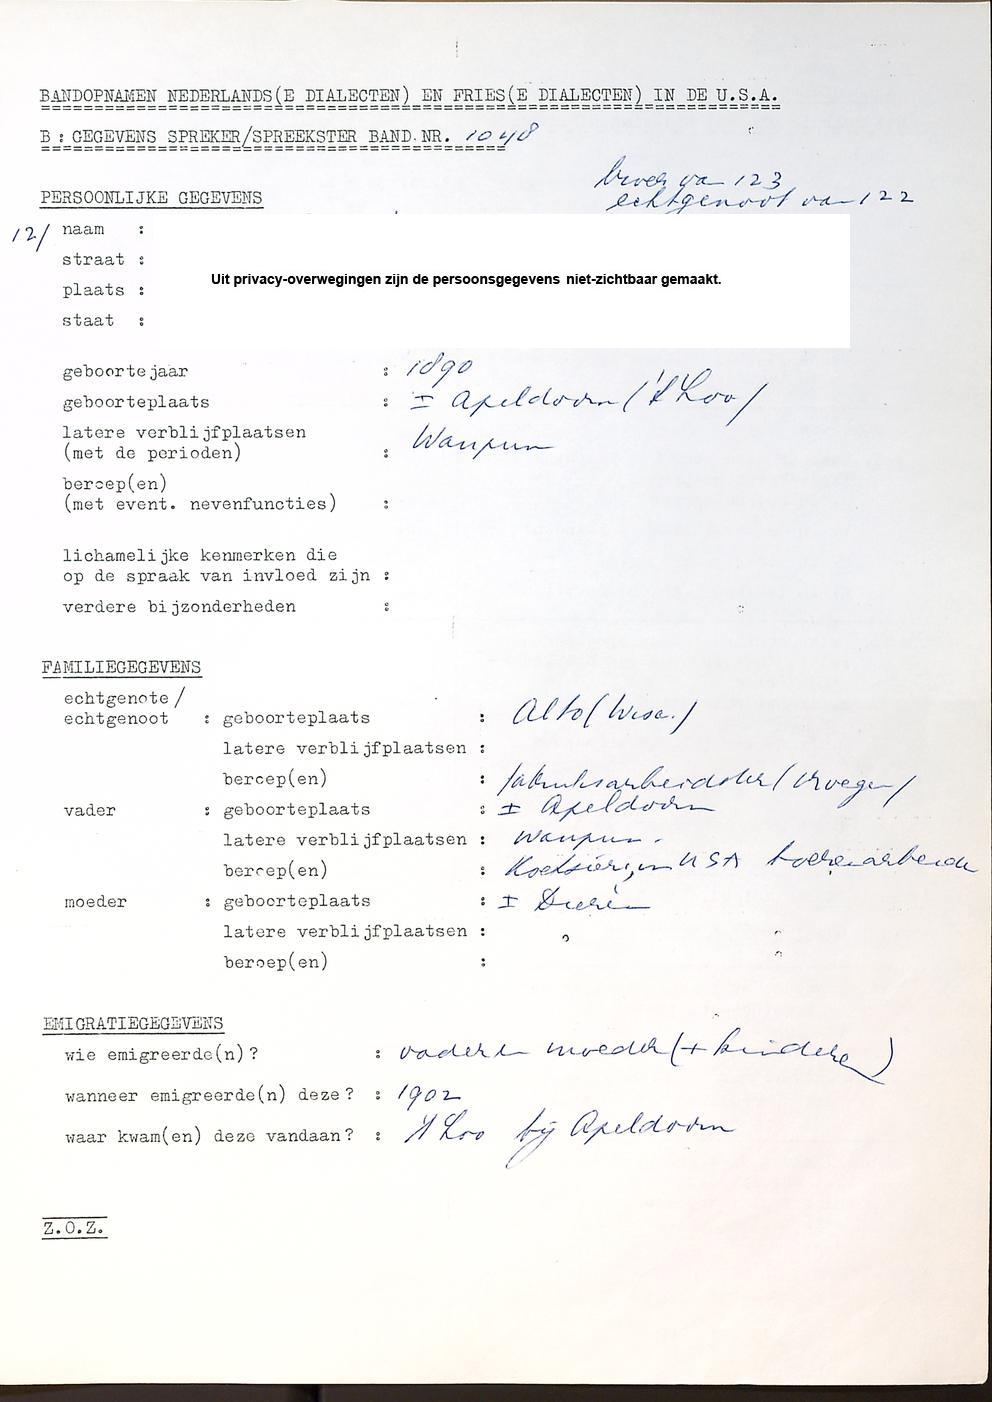 BANDOPNAMEN NEDERLANDS(E DIALECTEN) EN FRIES(E DIALECTEN) IN DE U.S.A.
B : GEGEVENS SPREKER/SPREEKSTER BAND.NR. 1048
broer van 123
PERSOONLIJKE GEGEVENS echtgenoot van 122
121 naam :
straat :
Uit privacy-overwegingen zijn de persoonsgegevens niet-zichtbaar gemaakt.
plaats :
staat :
geboortejaar : 1890
geboorteplaats : ± Apeldoorn ('t Loo)
latere verblijfplaatsen
(met de perioden) : Waupun
beroep(en)
(met event. nevenfuncties) :
lichamelijke kenmerken die
op de spraak van invloed zijn :
verdere bijzonderheden :
FAMILIEGEGEVENS
echtgenote/
echtgenoot : geboorteplaats : Alto (Wisc.)
latere verblijfplaatsen :
beroep(en) : fabrieksarbeidster (vroeger)
vader : geboorteplaats : ± Apeldoorn
latere verblijfplaatsen : Waupun.
beroep(en) : Koetsier, in USA boerenarbeider
moeder : geboorteplaats : ± Dieren
latere verblijfplaatsen :
beroep(en) :
EMIGRATIEGEGEVENS
wie emigreerde(n)? : vader en moeder (+ kinderen)
wanneer emigreerde(n) deze? : 1902
waar kwam(en) deze vandaan? : 't Loo bij Apeldoorn
Z.O.Z.